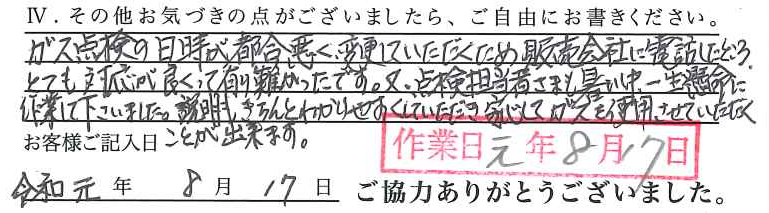 Ⅳ．その他お気づきの点がございましたら、ご自由にお書きください。
ガス点検の日時が都合悪く、変更していただくため販売会社に電話したところ
とても対応が良くって有り難かったです。又、点検担当者さまも暑い中一生懸命に
作業して下さいました。説明もきちんとわかりやすくしていただき安心してガスを使用させていただく
ことが出来ます。
お客様ご記入日
作業日 元年8月17日
令和元年 8月 17日 ご協力ありがとうございました。